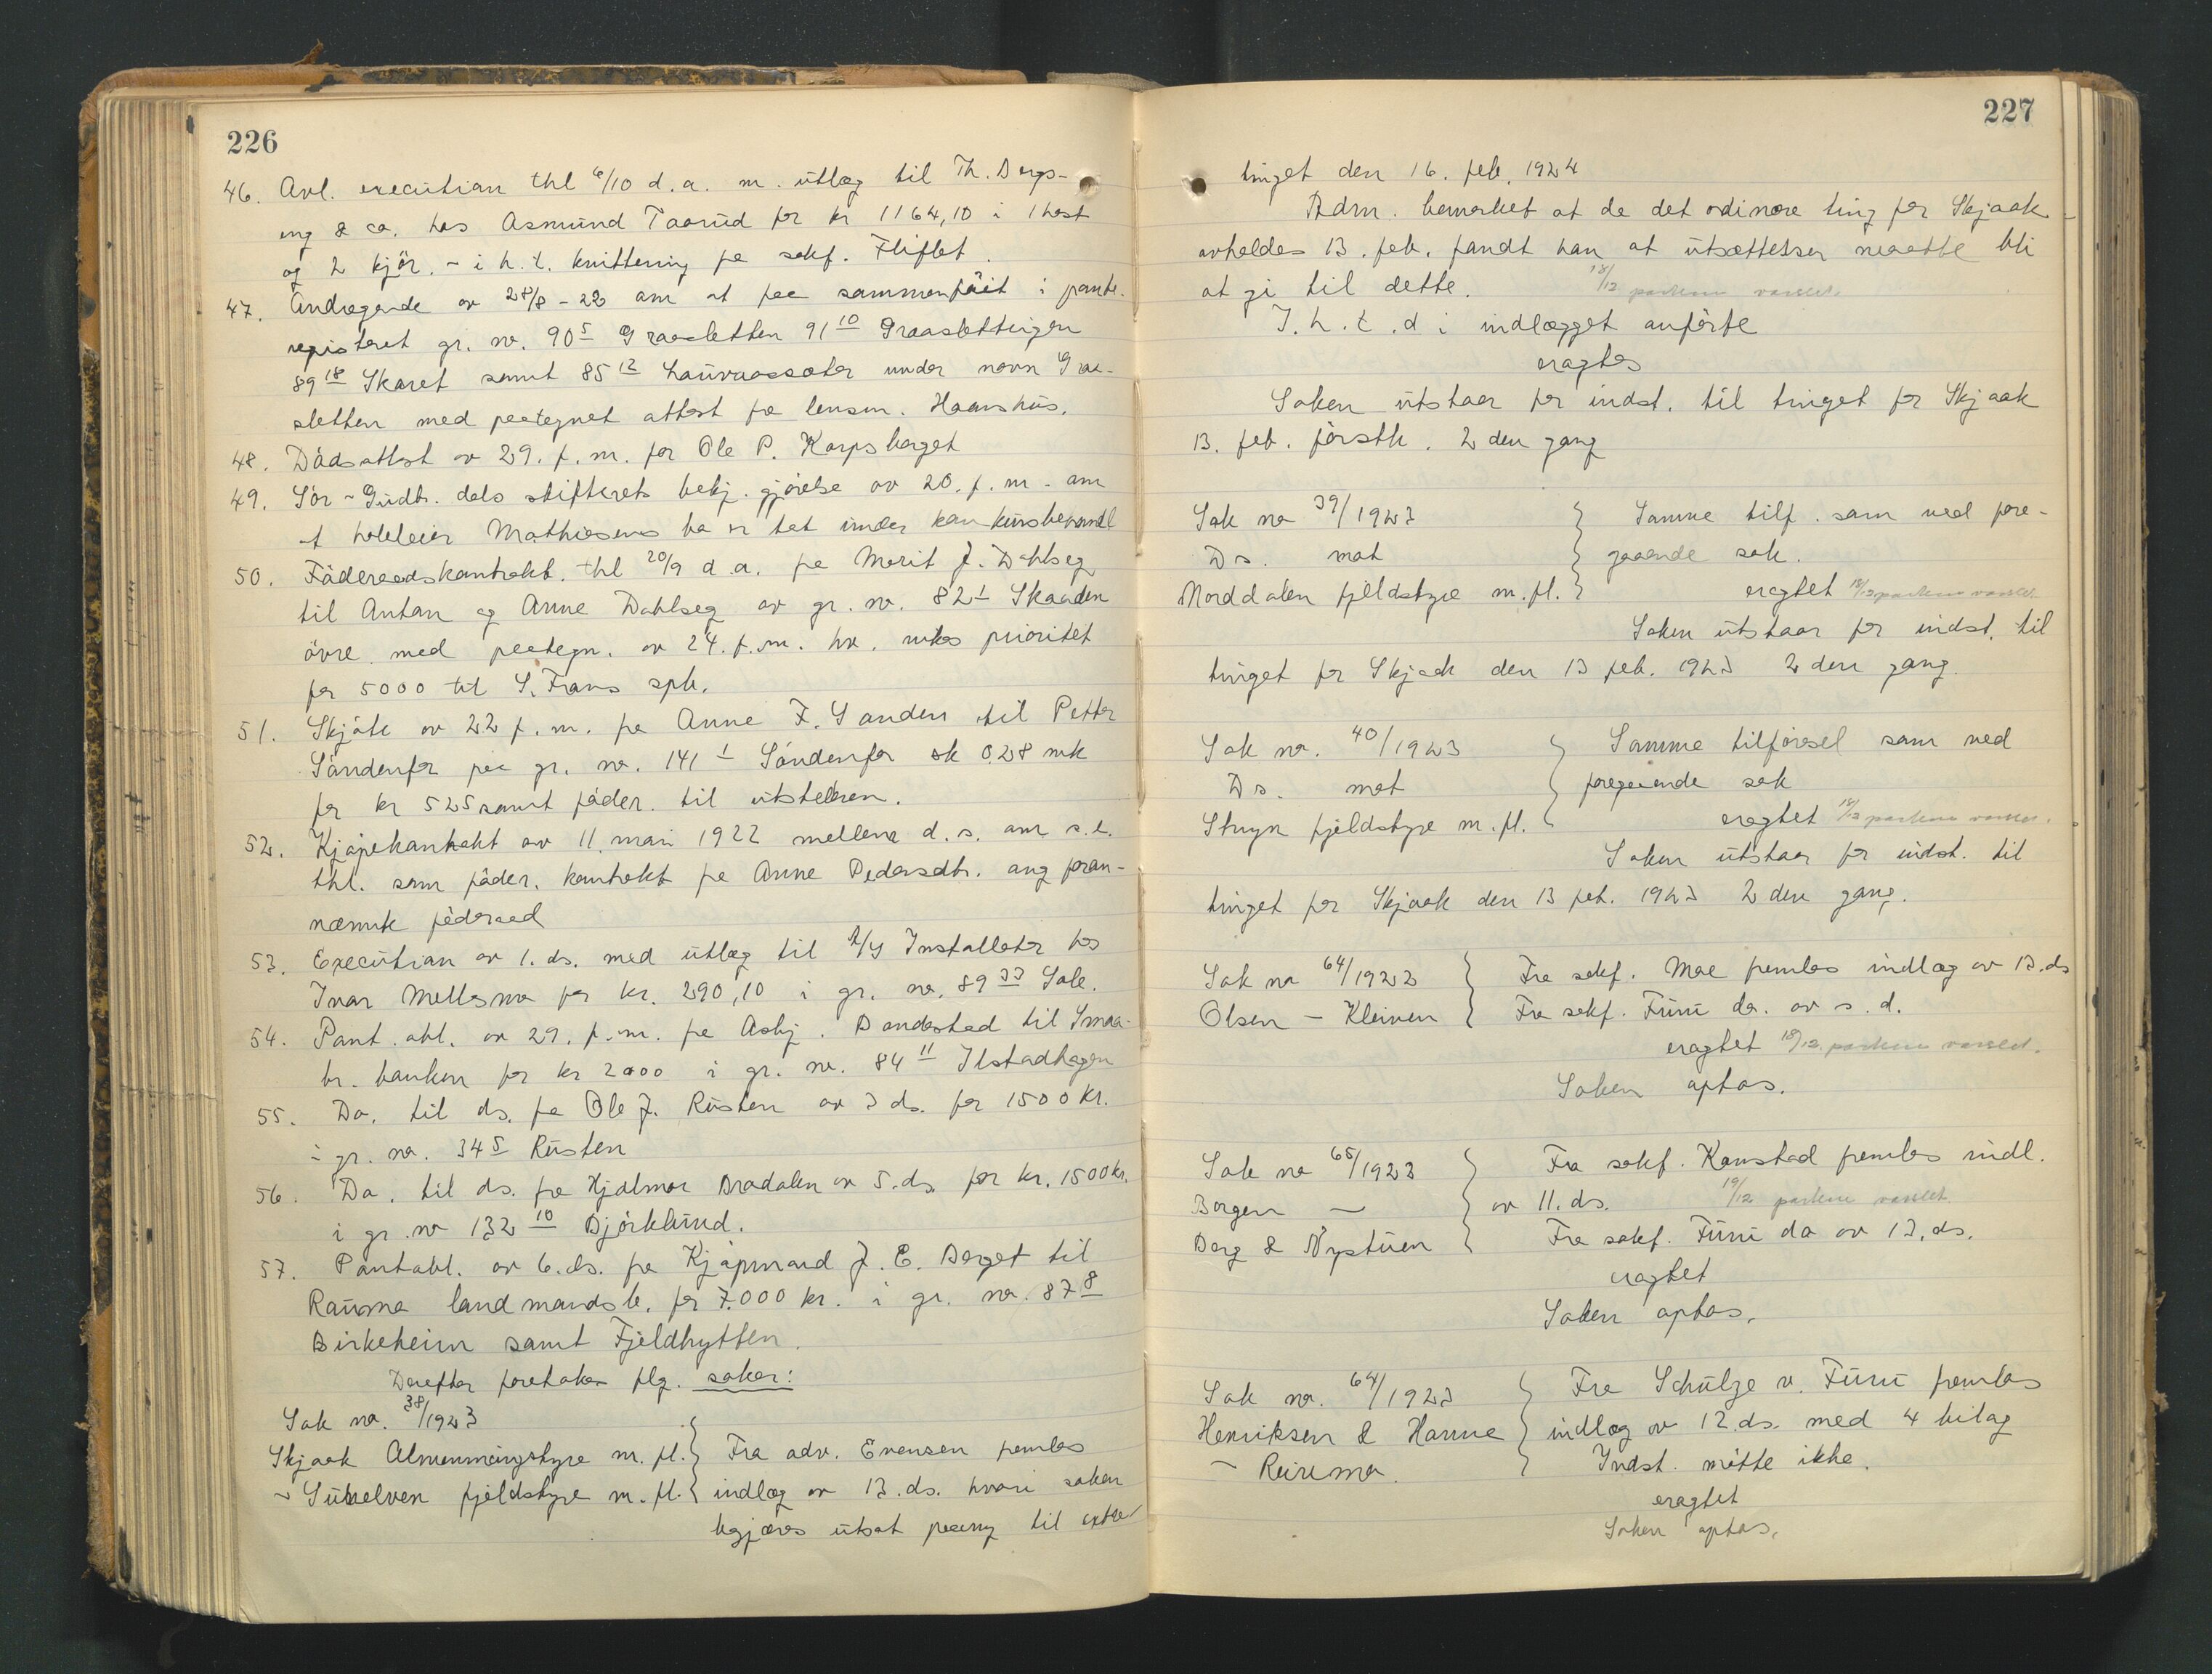 226
46. Avl. execution thl 6/10 d.a. m. utlæg til Th. Bergs-
eng & co. hos Asmund Taarud for kr 1164,10 i 1 hest
og 2 kjör. - i h.t. kvittering fra sakf. Fliflet.
47. Andragende av 28/8-22 om at faa sammenföiet i pante-
registeret gr. nr. 90 5 Graasletten 91 10 Graaslettingen
89 18 Skaret samt 85 12 Lauvaasseter under navn Graa-
sletten med paategnet attest fra lensm. Haanshus.
48. Dödsattest av 29. f.m. for Ole P. Korpsberget
49. Sör-Gudbr. dals skifterets bekj. gjörelse av 20. f.m. om
at hoteleier Mathiesens bo er tat under konkursbehandl
50. Föderaadskontrakt. thl 20/9 d.a. fra Marit J. Dahlseg
til Anton og Anne Dahlseg av gr. nr. 82 1 Skaaden
övre med paategn. av 24. f.m. hv. vikes prioritet
for 5000 til S. Frons spb.
51. Skjöte av 22 f.m. fra Anne F. Sanden til Petter
Söndenfor paa gr. nr. 141 1 Söndenfor sk 0.28 mk
for kr 525 samt föder. til utstederen.
52. Kjöpekontrakt av 11. mars 1922 mellem d.s. om s.e.
thl. som föder. kontrakt fra Anne Pedersdtr. ang foran-
nævnte föderaad
53. Execution av 1. ds. med utlæg til A/S Installatör hos
Ivar Mellesmo for kr. 290,10 i gr. nr. 89 33 Sole.
54. Pant. obl. av 29. f.m. fra Asbj. Bondestad til Smaa-
br. banken for kr 2000 i gr. nr. 84 11 Ilstadhagen
55. Do. til ds. fra Ole J. Rusten av 3 ds. for 1500 kr.
i gr. nr. 34 5 Rusten
56. Do. til ds. fra Hjalmar Bradalen av 5. ds. for kr. 1500 kr.
i gr. nr 132 10 Björklund.
57. Pantobl. av 6. ds. fra Kjöpmand J. E. Berget til
Rauma landmandsb. for 7.000 kr. i gr. nr. 87 8
Birkeheim samt Fjeldhytten.
Derefter foretokes flg. saker:
Sak nr. 38/1923
Skjaak Almenningstyre m. fl. } Fra adv. Evensen fremlas
- Sunelven fjeldstyre m. fl. } indlæg av 13. ds. hvori saken
begjæres utsat paany til extra
227
tinget den 16. feb. 1924
Adm. bemerket at da det ordinære ting for Skjaak
avholdes 13. feb. fandt han at utsættelsen maatte bli
at gi til dette. 18/12 partene varslet.
I.h.t. d i indlægget anförte
eragtes
Saken utstaar for indst. til tinget for Skjaak
13. feb. förstk. 2den gang
Sak nr 39/1923 } Samme tilf. som ved fore-
Ds. mot } gaaende sak.
Norddalen fjeldstyre m. fl. } eragtet 18/12 partene varslet
Saken utstaar for indst. til
tinget for Skjaak den 13 feb. 1923 2den gang.
Sak nr. 40/1923 } Samme tilförsel som ved
Ds. mot } foregaaende sak
Stryn fjeldstyre m. fl. } eragtet 18/12 partene varslet.
Saken utstaar for indst. til
tinget for Skjaak den 13 feb. 1923 2den gang.
Sak nr 64/1922 } Fra sakf. Moe fremlas indlæg av 13. ds
Olsen - Kleiven } Fra sakf. Furu do. av s.d.
eragtet 18/12. partene varslet.
Saken optas.
Sak nr 65/1923 } Fra sakf. Kanstad fremlas indl.
Borgen - } av 11. ds. 19/12 partene varslet
Berg & Nystuen } Fra sakf. Furu do av 13. ds.
eragtet
Saken optas.
Sak nr. 64/1923 } Fra Schulze v. Furu fremlas
Henriksen & Hanne } indlæg av 12. ds. med 4 bilag
- Reiremo. } Indst. mötte ikke.
eragtet
Saken optas.